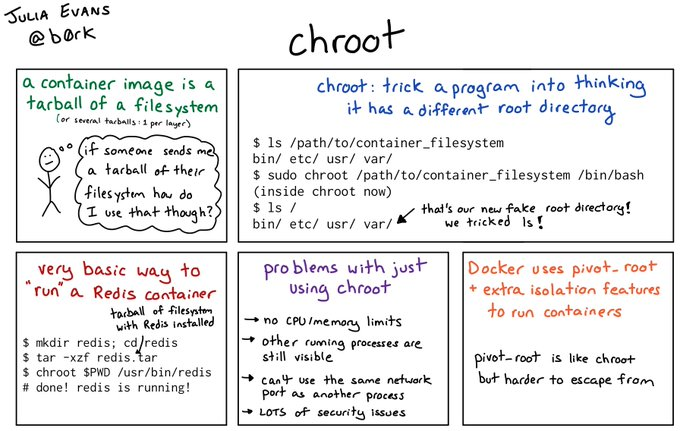 JULIA EVANS
@b0rk
chroot
a container image is a
tarball of a filesystem
(or several tarballs: 1 per layer)
if someone sends me
a tarball of their
filesystem how do
I use that though?
chroot: trick a program into thinking
it has a different root directory
$ ls /path/to/container_filesystem
bin/ etc/ usr/ var/
$ sudo chroot /path/to/container_filesystem /bin/bash
(inside chroot now)
$ ls /
bin/ etc/ usr/ var/
that's our new fake root directory!
we tricked ls!
very basic way to
"run" a Redis container
tarball of filesystem
with Redis installed
$ mkdir redis; cd redis
$ tar -xzf redis.tar
$ chroot $PWD /usr/bin/redis
# done! redis is running!
problems with just
using chroot
→ no CPU/memory limits
→ other runing processes are
still visible
→ can't use the same network
port as another process
→ LOTS of security issues
Docker uses pivot_root
+ extra isolation features
to run containers
pivot_root is like chroot
but harder to escape from